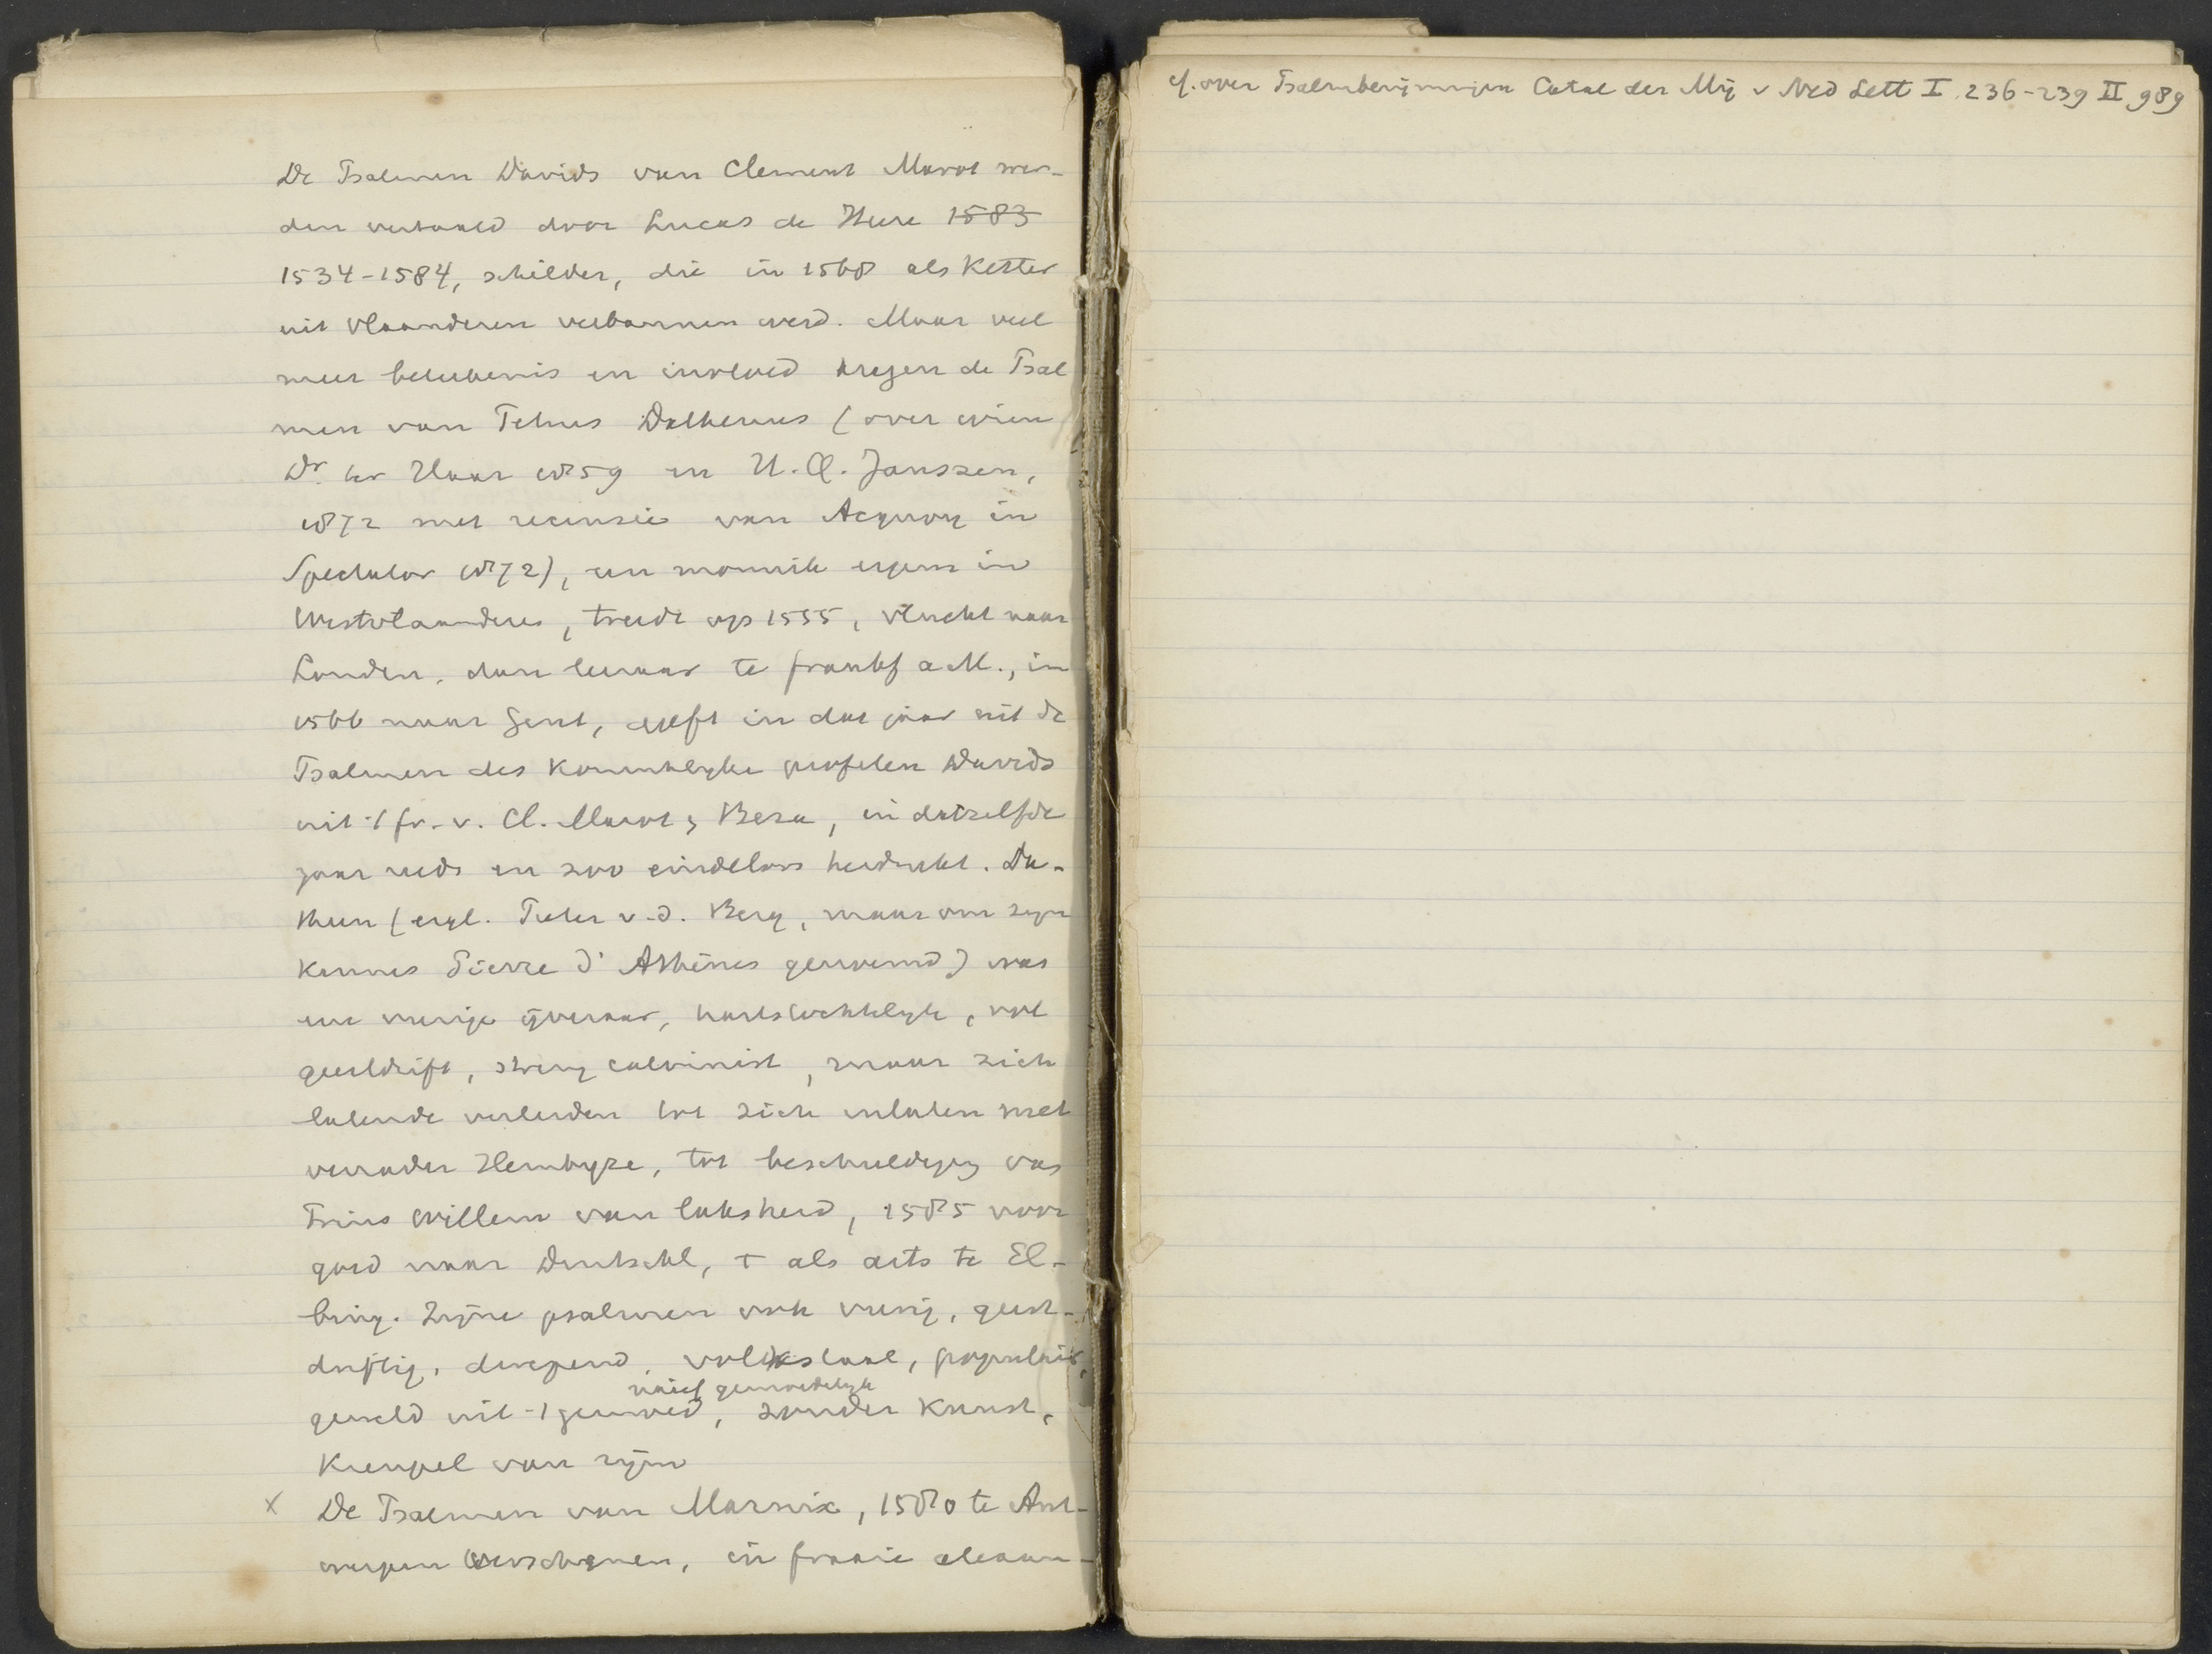 De Psalmen Davids van Clement Marot wer-
den vertaald door Lucas de Heere 1583
1534-1584, schilder, die in 1568 als Ketter
uit Vlaanderen verbannen werd. Maar veel
meer beteekenis en invloed kregen de Psal
men van Petrus Dathenus (over wien
Dr. ter Haar 1859 en H. Q. Janssen,
1872 met recensie van Acquoy in
Spectator 1872), een monnik ergens in
Westvlaanderen, treedt op 1555, vlucht naar
Londen, dan leeraar te Frankf a M., in
1566 naar Gent, geeft in dat jaar uit de
Psalmen des Konincklyke profeten Davids
uit 't fr. v. Cl. Marot & Beza, in datzelfde
jaar reeds en zoo eindeloos herdrukt. Da-
theen (eigl. Pieter v.d. Berg, maar om zyn
kennis Pierre d'Athènes genoemd) was
een vurige ijveraar, hartstochtelyk, vol
geestdrift, streng calvinist, maar zich
latende verleiden tot zich inlaten met
verrader Hembyze, tot beschuldiging van
Prins Willem van laksheid, 1585 voor
goed naar Duitschl, † als arts te El-
bing. Zijne psalmen ook vurig, geest-
driftig, diepend, volkstaal, populair,
naief gemoedelyk
geweld uit 't gemoed, zonder kunst,
Kreupel van rijm
x De Psalmen van Marnix, 1580 te Ant-
werpen verschenen, in fraaie alexan-
cf. over Psalmberijmingen Catal der Mij v Ned Lett I 236-239 II 989